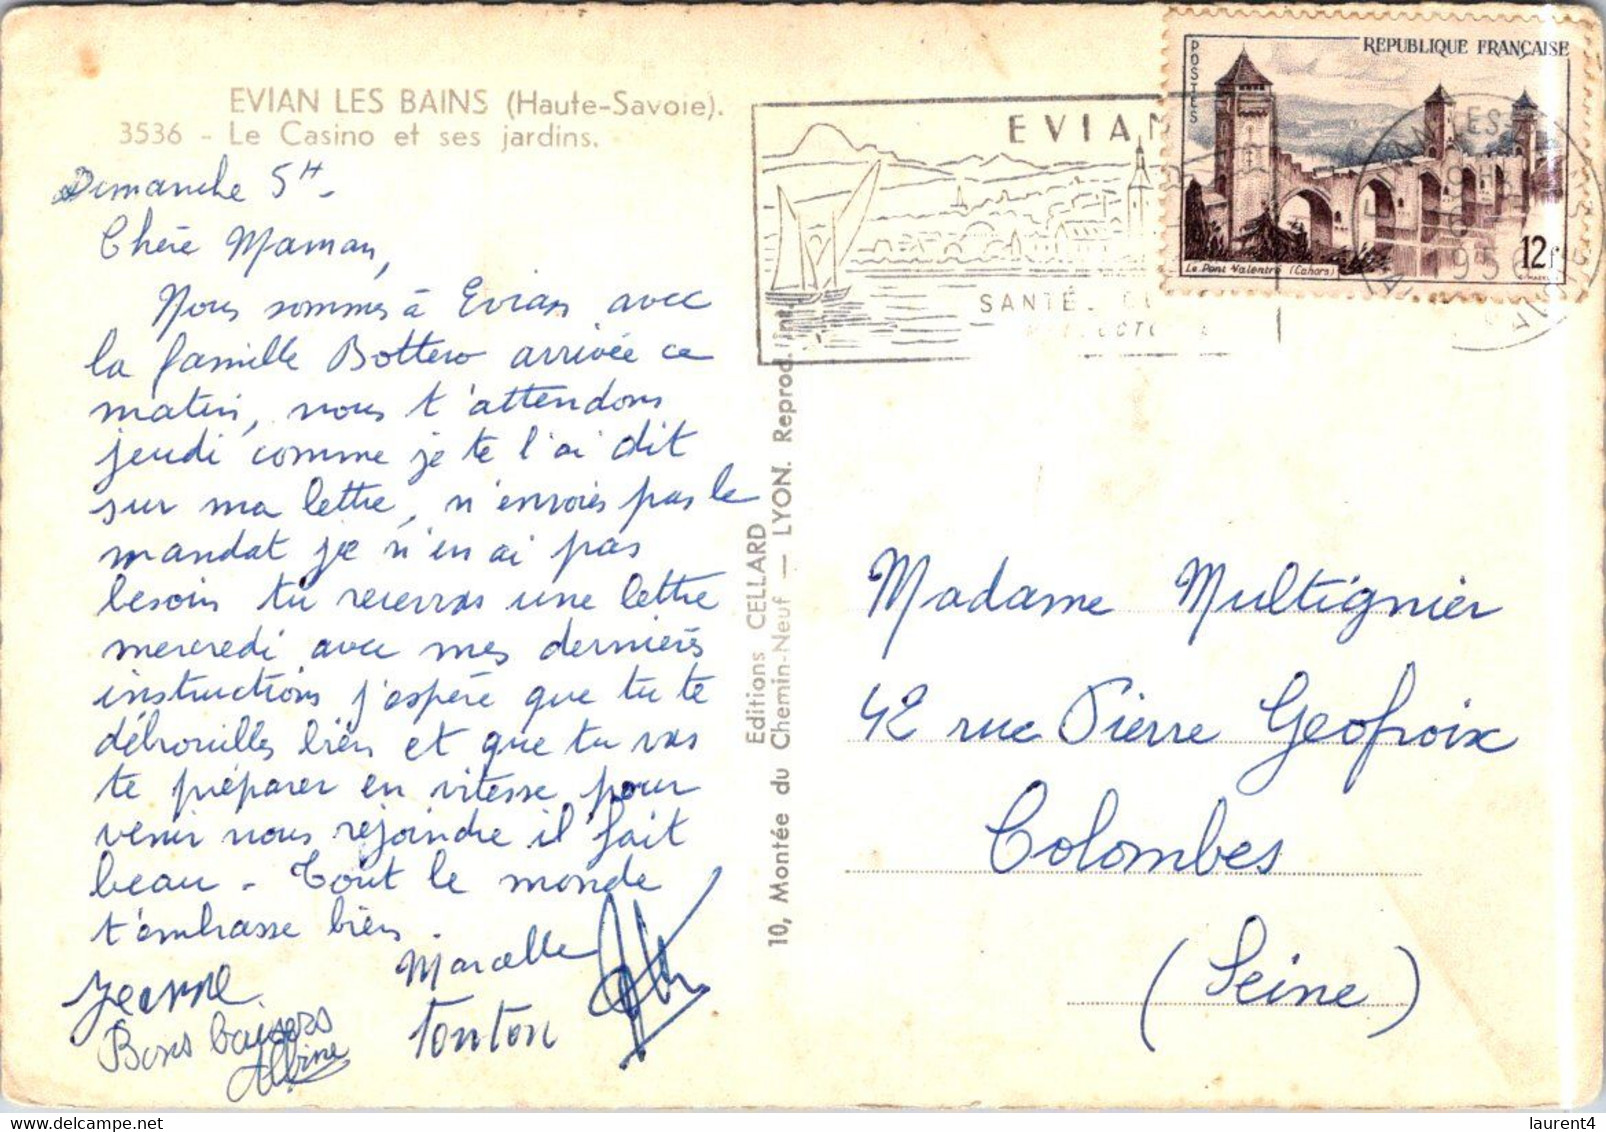 EVIAN LES BAINS (Haute-Savoie).
3536 - Le Casino et ses jardins.
Dimanche 5H -
Chère Maman,
Nous sommes à Evian avec
la famille Bottero arrivée ce
matin, nous t'attendons
jeudi comme je te l'ai dit
sur ma lettre, n'envoies pas le
mandat je n'en ai pas
besoin tu recevras une lettre
mercredi avec mes dernières
instructions j'espère que tu te
débrouilles bien et que tu vas
te préparer en vitesse pour
venir nous rejoindre il fait
beau - Tout le monde
t'embrasse bien.
Jeanne
Marcelle
Tonton
Bons baisers
Albine
Editions CELLARD
10, Montée du Chemin-Neuf — LYON. Reprod. int.
EVIAN
SANTÉ
REPUBLIQUE FRANÇAISE
POSTES
Le Pont Valentré (Cahors)
12f
Madame Multignier
42 rue Pierre Geofroix
Colombes
(Seine)
delcampe.net
laurent4